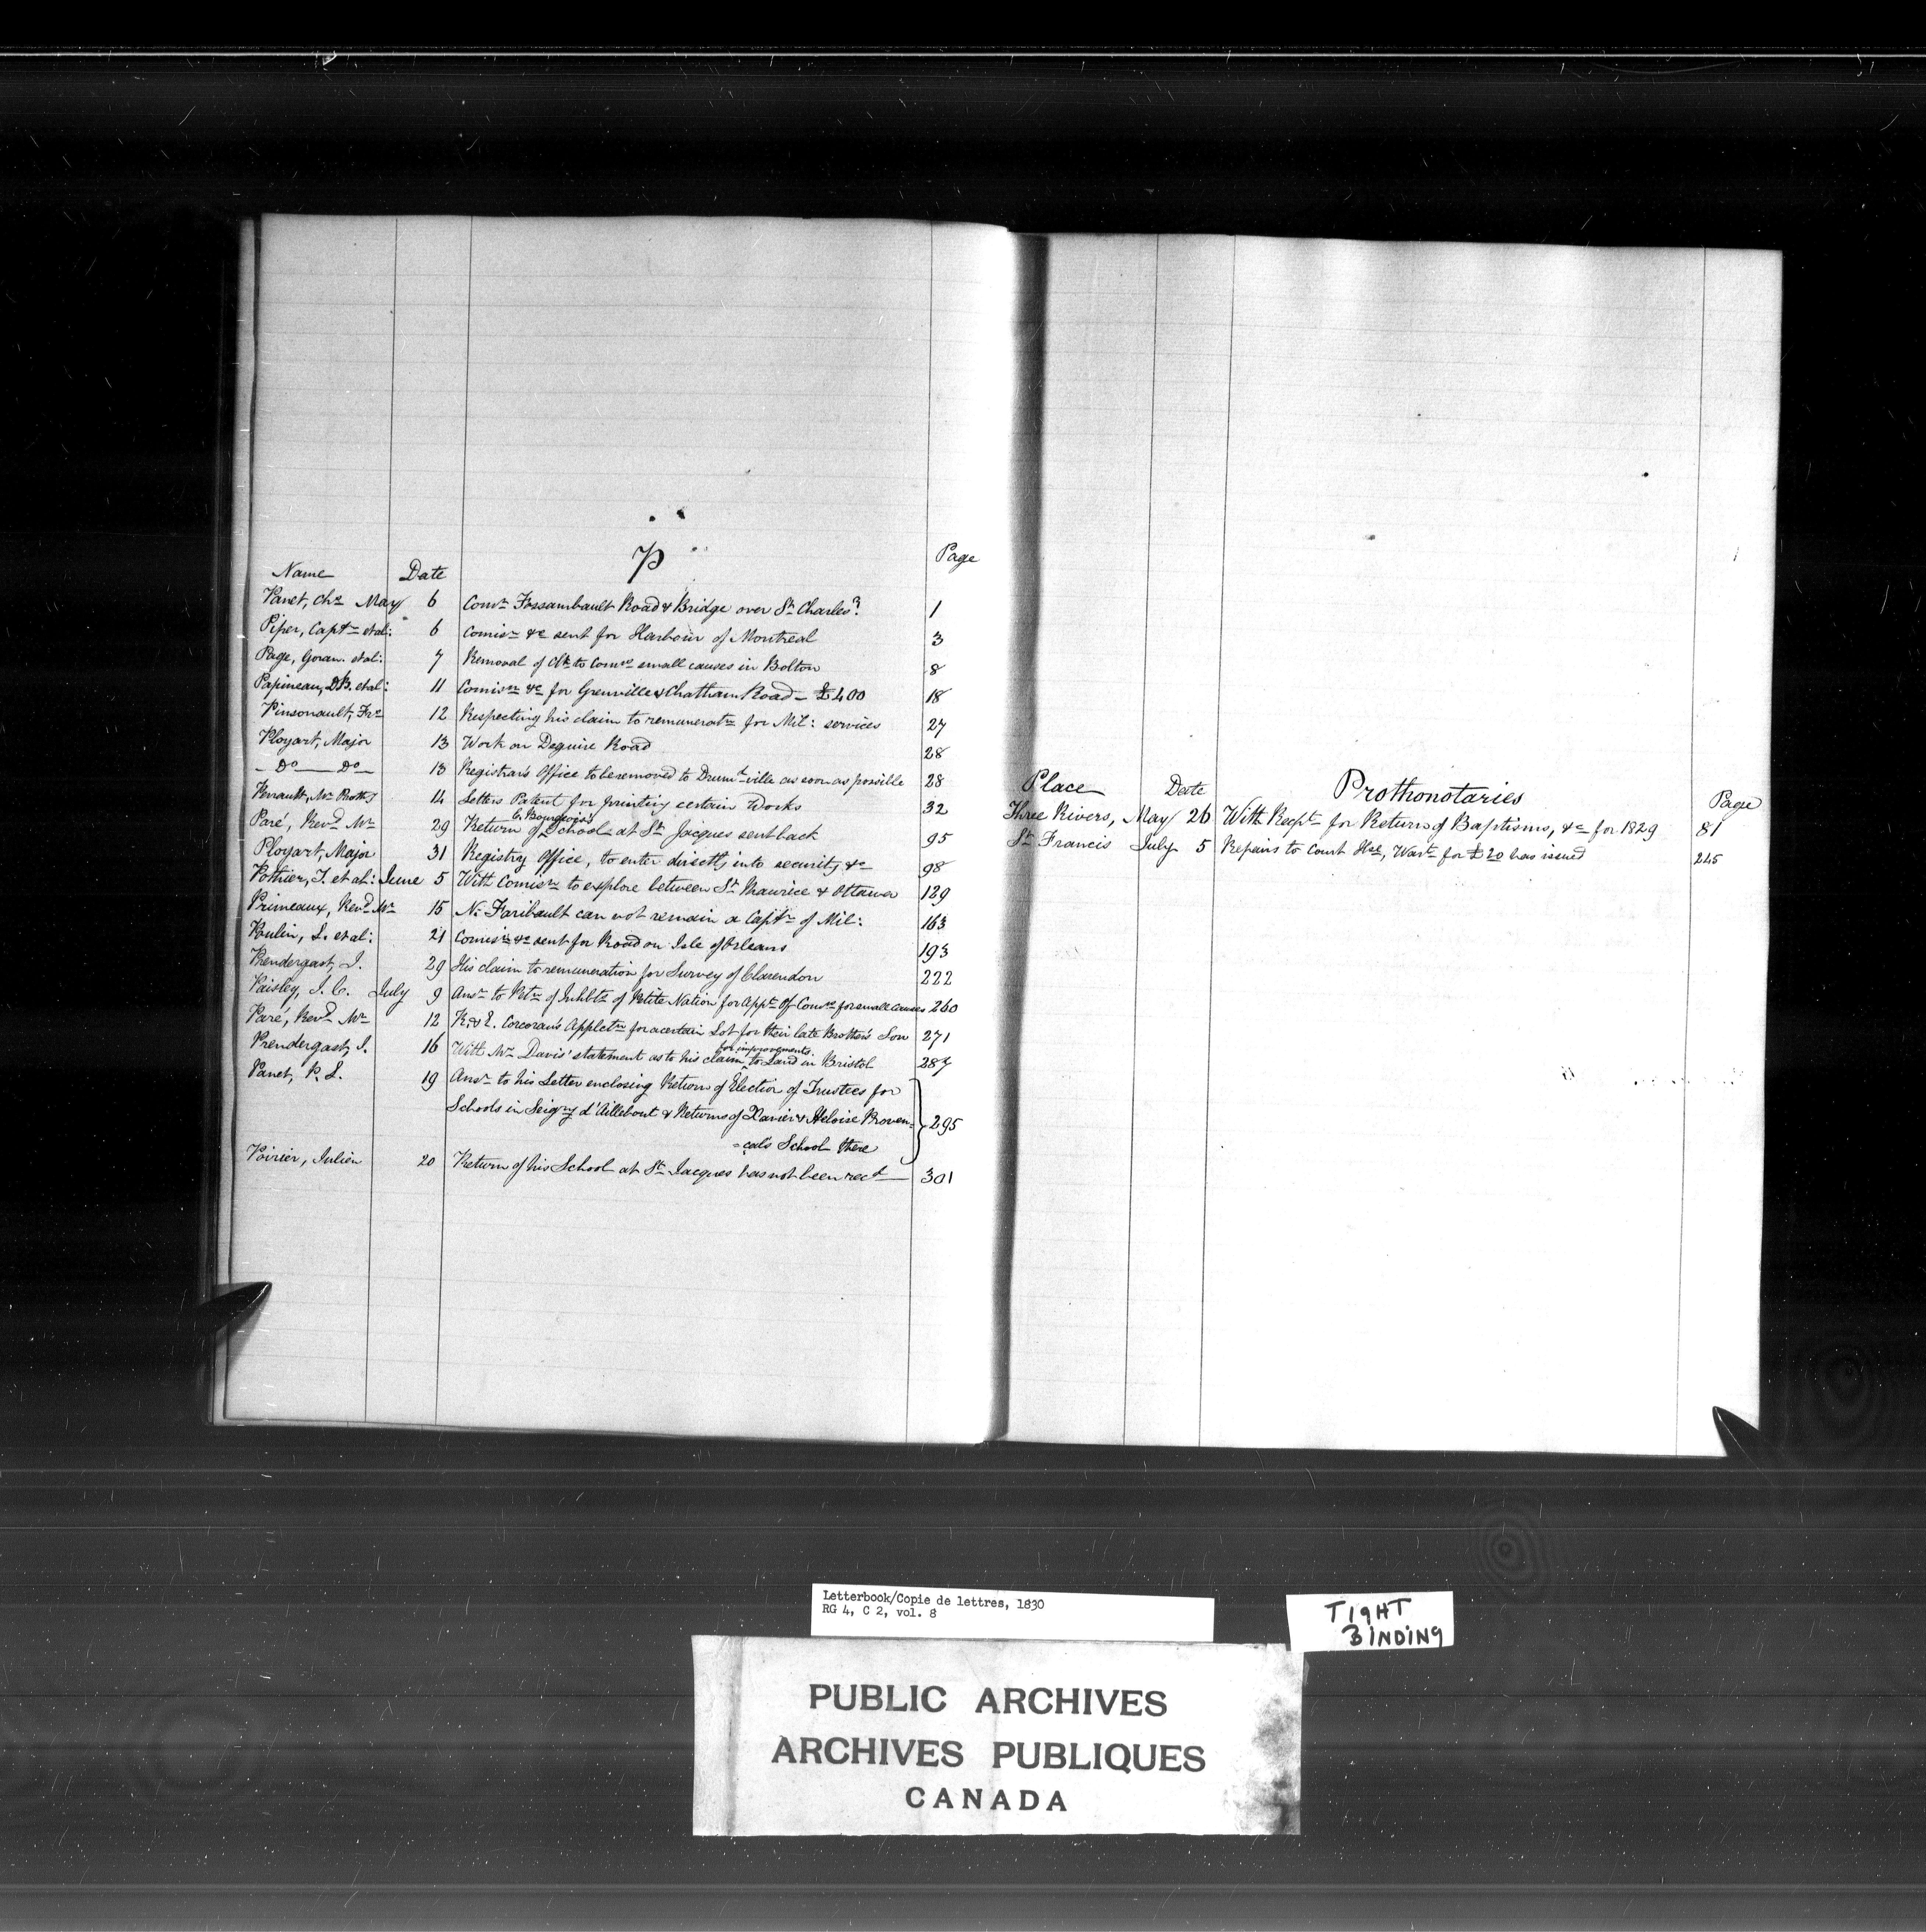 P
Name Date Page
Panet, Chs May 6 Comn Fossambault Road & Bridge over St Charles? 1
Piper, Captn et al: 6 Comisn &c sent for Harbour of Montreal 3
Page, Goran. et al: 7 Removal of Clk to Comrs small causes in Bolton 8
Papineau, D.B. et al: 11 Comisn &c for Grenville & Chatham Road - £400 18
Pinsonault, Frs 12 Respecting his claim to remuneratn for Mil: services 27
Ployart, Major 13 Work on Deguire Road 28
- Do - Do - 13 Registrar's Office to be removed to Drumd ville as soon as possible 28
Perrault, Mr Proth 14 Letters Patent for printing certain Works 32
Paré, Revd Mr 29 Return of C. Bourgeois's School at St Jacques sent back 95
Ployart, Major 31 Registry Office, to enter directly into security &c 98
Pothier, T. et al: June 5 With Comisn to explore between St Maurice & Ottawa 129
Primeaux, Revd Mr 15 N. Faribault can not remain a Captn of Mil: 163
Poulin, L. et al: 21 Comisn &c sent for Road on Isle of Orleans 193
Prendergast, J. 29 His claim to remuneration for Survey of Clarendon 222
Paisley, J. C. July 9 Ansr to Ptn of Inhbts of Petite Nation for Appt of Comrs for small causes 260
Paré, Revd Mr 12 K. & E. Corcoran's Applctn for a certain Lot for their late Brother's Son 271
Prendergast, J. 16 With Mr Davis' statement as to his claim for improvements to Land in Bristol 287
Panet, P. L. 19 Ansr to his Letter enclosing Return of Election of Trustees for
Schools in Seigry d'Aillebout & Returns of Xavier & Heloise Proven- 295
=çal's School there
Poirier, Julien 20 Return of his School at St Jacques has not been recd 301
Place Date Prothonotaries Page
Three Rivers, May 26 With Recpt for Return of Baptisms, &c for 1829 81
St Francis July 5 Repairs to Court Hse, Wart for £20 has issued 245
Letterbook/Copie de lettres, 1830
RG 4, C 2, vol. 8
TIGHT
BINDING
PUBLIC ARCHIVES
ARCHIVES PUBLIQUES
CANADA